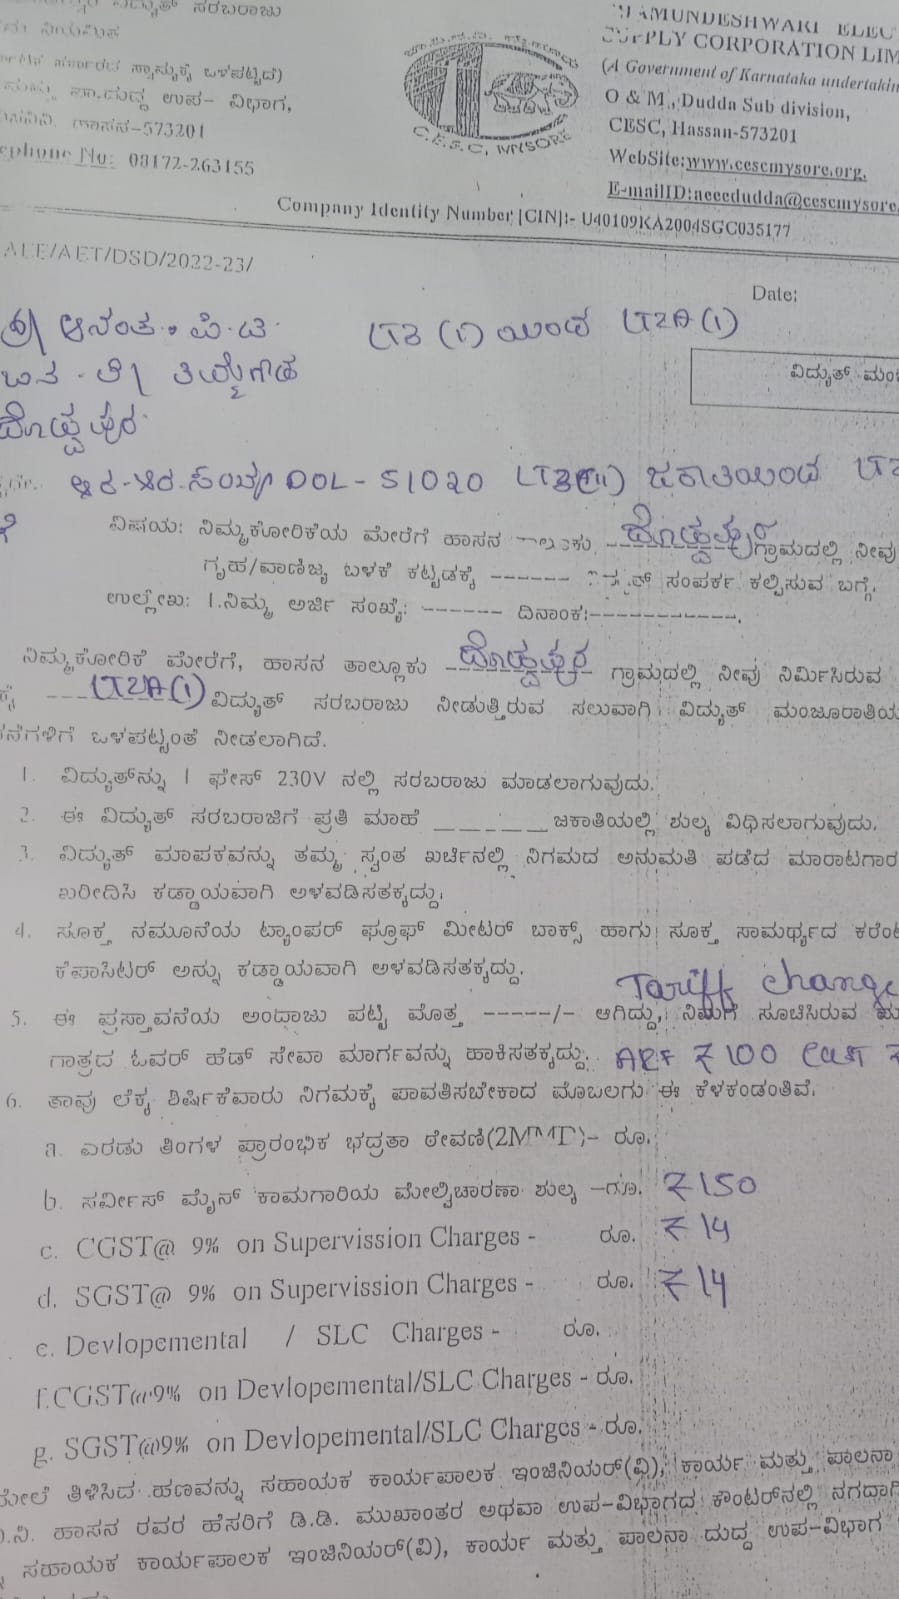 ವಿದ್ಯುತ್ ಸರಬರಾಜು
CHAMUNDESHWARI ELEC
SUPPLY CORPORATION LIM
ಸರ್ಕಾರದ ಸ್ವಾಮ್ಯಕ್ಕೆ ಒಳಪಟ್ಟಿದೆ)
(A Government of Karnataka undertakin
ದುದ್ದ ಉಪ- ವಿಭಾಗ,
O & M., Dudda Sub division,
ಹಾಸನ-573201
CESC, Hassan-573201
ephone No: 08172-263155
WebSite:www.cescmysore.org.
E-mailID:aeeedudda@cescmysore.
C.E.S.C, MYSORE
Company Identity Number [CIN]:- U40109KA2004SGC035177
AEE/AET/DSD/2022-23/
Date:
ಶ್ರೀ ಆನಂತ. ಪಿ.ಟಿ LT3 (1) ಯಿಂದ LT2A(1)
ಬಿನ್
ವಿದ್ಯುತ್ ಮಂ
ದೊಡ್ಡಪುರ
ಆರ.ಆರ.ಸಂಖ್ಯೆ DDL-51020 LT3(i) ಜಕಾತಿಯಿಂದ LT2
ವಿಷಯ: ನಿಮ್ಮಕೋರಿಕೆಯ ಮೇರೆಗೆ ಹಾಸನ ತಾಲೂಕು ದೊಡ್ಡಪುರ ಗ್ರಾಮದಲ್ಲಿ ನೀವು
ಗೃಹ/ವಾಣಿಜ್ಯ ಬಳಕೆ ಕಟ್ಟಡಕ್ಕೆ ------ ವಿದ್ಯುತ್ ಸಂಪರ್ಕ ಕಲ್ಪಿಸುವ ಬಗ್ಗೆ.
ಉಲ್ಲೇಖ: 1.ನಿಮ್ಮ ಅರ್ಜಿ ಸಂಖ್ಯೆ: ------ ದಿನಾಂಕ:-----------.
ನಿಮ್ಮಕೋರಿಕೆ ಮೇರೆಗೆ, ಹಾಸನ ತಾಲ್ಲೂಕು ದೊಡ್ಡಪುರ ಗ್ರಾಮದಲ್ಲಿ ನೀವು ನಿರ್ಮಿಸಿರುವ
ಕ್ಕೆ ---LT2A(1) ವಿದ್ಯುತ್ ಸರಬರಾಜು ನೀಡುತ್ತಿರುವ ಸಲುವಾಗಿ ವಿದ್ಯುತ್ ಮಂಜೂರಾತಿಯ
ನೆಗಳಿಗೆ ಒಳಪಟ್ಟಂತೆ ನೀಡಲಾಗಿದೆ.
1. ವಿದ್ಯುತ್‌ನ್ನು 1 ಫೇಸ್ 230V ನಲ್ಲಿ ಸರಬರಾಜು ಮಾಡಲಾಗುವುದು.
2. ಈ ವಿದ್ಯುತ್ ಸರಬರಾಜಿಗೆ ಪ್ರತಿ ಮಾಹೆ _ _ _ _ _ ಜಕಾತಿಯಲ್ಲಿ ಶುಲ್ಕ ವಿಧಿಸಲಾಗುವುದು.
3. ವಿದ್ಯುತ್ ಮಾಪಕವನ್ನು ತಮ್ಮ ಸ್ವಂತ ಖರ್ಚಿನಲ್ಲಿ ನಿಗಮದ ಅನುಮತಿ ಪಡೆದ ಮಾರಾಟಗಾರ
ಖರೀದಿಸಿ ಕಡ್ಡಾಯವಾಗಿ ಅಳವಡಿಸತಕ್ಕದ್ದು.
4. ಸೂಕ್ತ ನಮೂನೆಯ ಟ್ಯಾಂಪರ್ ಫ್ರೂಫ್ ಮೀಟರ್ ಬಾಕ್ಸ್ ಹಾಗು ಸೂಕ್ತ ಸಾಮರ್ಥ್ಯದ ಕರೆಂಟ
ಕೆಪಾಸಿಟರ್ ಅನ್ನು ಕಡ್ಡಾಯವಾಗಿ ಅಳವಡಿಸತಕ್ಕದ್ದು.
Tariff change
5. ಈ ಪ್ರಸ್ತಾವನೆಯ ಅಂದಾಜು ಪಟ್ಟಿ ಮೊತ್ತ -----/- ಆಗಿದ್ದು, ನಿಮಗೆ ಸೂಚಿಸಿರುವ
ಗಾತ್ರದ ಓವರ್ ಹೆಡ್ ಸೇವಾ ಮಾರ್ಗವನ್ನು ಹಾಕಿಸತಕ್ಕದ್ದು. ARF ₹100
6. ತಾವು ಲೆಕ್ಕ ಶಿರ್ಷಿಕೆವಾರು ನಿಗಮಕ್ಕೆ ಪಾವತಿಸಬೇಕಾದ ಮೊಬಲಗು ಈ ಕೆಳಕಂಡಂತಿವೆ.
a. ಎರಡು ತಿಂಗಳ ಪ್ರಾರಂಭಿಕ ಭದ್ರತಾ ಠೇವಣಿ(2MMD)- ರೂ.
b. ಸರ್ವೀಸ್ ಮೈನ್ ಕಾಮಗಾರಿಯ ಮೇಲ್ವಿಚಾರಣಾ ಶುಲ್ಕ –ರೂ. ₹150
c. CGST@ 9% on Supervission Charges - ರೂ. ₹14
d. SGST@ 9% on Supervission Charges - ರೂ. ₹14
e. Devlopemental / SLC Charges - ರೂ.
f.CGST@9% on Devlopemental/SLC Charges - ರೂ.
g. SGST@9% on Devlopemental/SLC Charges - ರೂ.
ಮೇಲೆ ತಿಳಿಸಿದ ಹಣವನ್ನು ಸಹಾಯಕ ಕಾರ್ಯಪಾಲಕ ಇಂಜಿನಿಯರ್(ವಿ), ಕಾರ್ಯ ಮತ್ತು ಪಾಲನಾ
.ನಿ. ಹಾಸನ ರವರ ಹೆಸರಿಗೆ ಡಿ.ಡಿ. ಮುಖಾಂತರ ಅಥವಾ ಉಪ-ವಿಭಾಗದ ಕೌಂಟರ್‌ನಲ್ಲಿ ನಗದಾಗಿ
ಸಹಾಯಕ ಕಾರ್ಯಪಾಲಕ ಇಂಜಿನಿಯರ್(ವಿ), ಕಾರ್ಯ ಮತ್ತು ಪಾಲನಾ ದುದ್ದ ಉಪ-ವಿಭಾಗ